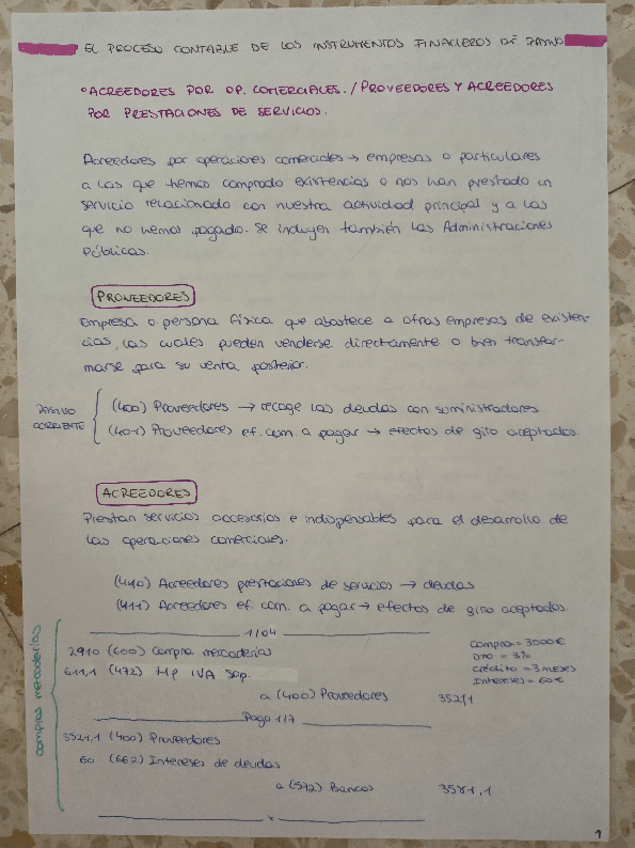 EL PROCESO CONTABLE DE LOS INSTRUMENTOS FINACIEROS DE PASIVO
ACREEDORES POR OP. COMERCIALES. / PROVEEDORES Y ACREEDORES
POR PRESTACIONES DE SERVICIOS.
Acreedores por operaciones comerciales → empresas o particulares
a las que hemos comprado existencias o nos han prestado un
servicio relacionado con nuestra actividad principal y a las
que no hemos pagado. Se incluyen también las Administraciones
Públicas.
PROVEEDORES
Empresa o persona física que abastece a otras empresas de existen-
cias, las cuales pueden venderse directamente o bien transfor-
marse para su venta posterior.
PASIVO CORRIENTE
(400) Proveedores → recoge las deudas con suministradores.
(401) Proveedores ef. com. a pagar → efectos de giro aceptados.
ACREEDORES
Prestan servicios accesorios e indispensables para el desarrollo de
las operaciones comerciales.
(410) Acreedores prestaciones de servicios → deudas
(411) Acreedores ef. com. a pagar → efectos de giro aceptados.
compras mercaderías
1/04
Compra = 3000€
DTO = 3%
Crédito = 3 meses
Intereses = 60€
2910 (600) Compra mercaderías
611,1 (472) Hp IVA Sop.
a (400) Proveedores 3521,1
Pago 1/7
3521,1 (400) Proveedores
60 (662) Intereses de deudas
a (572) Bancos 3581,1
x
1